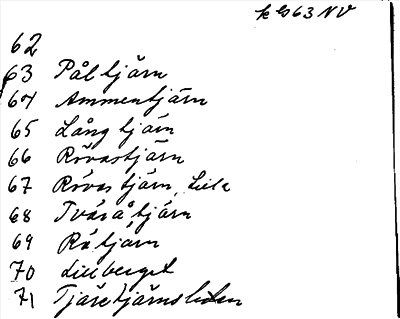 63 NV
62
63 Påltjärn
64 Ammentjärn
65 Långtjärn
66 Rövastjärn
67 Rövastjärn, Lilla
68 Tväråtjärn
69 Råtjärn
70 Lillberget
71 Tjäretjärnsliden